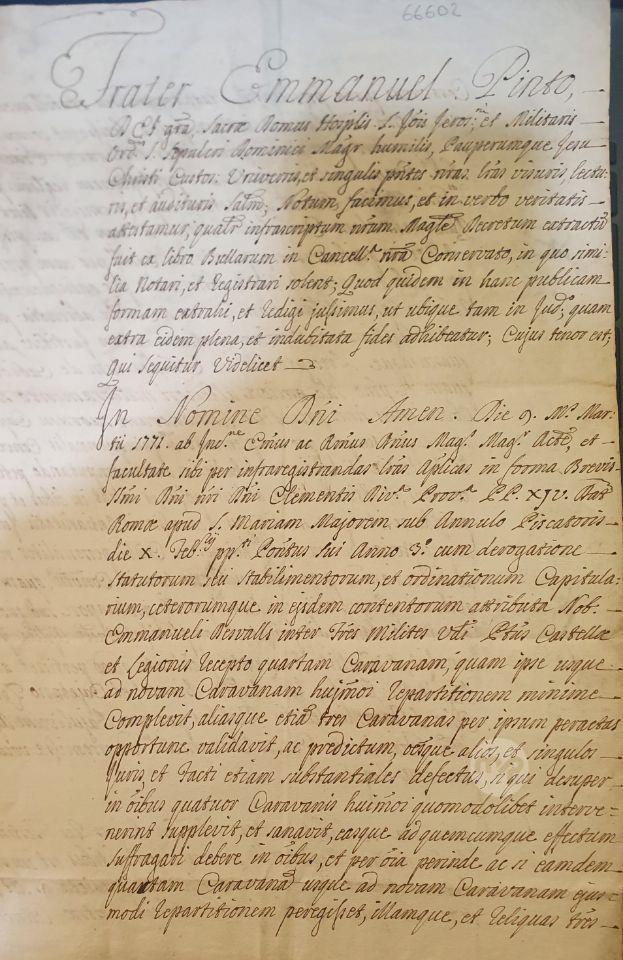 66602
Frater Emmanuel Pinto,
D Et grã, Sacræ Domus Hosplis S. Jõis Jeros:ni et Militaris
Ord: S. Sepulcri Dominici Magr humilis, Pauperumque Jesu
Christi Custos: Universis, et singulis pñtes nr̃as lr̃as visuris, lectu-
ris, et audituris Salm; Notum facimus, et in verbo veritatis
attestamur, qualr infrascriptum nrum Magle Decretum extractũ
fuit ex libro Bullarum in Cancellr. nr̃a Conservato, in quo simi-
lia Notari, et Registrari solent; Quod quidem in hanc publicam
formam extrahi, et redigi jussimus, ut ubique tam in Judo, quam
extra eidem plena, et indubitata fides adhibeatur; Cujus tenor est,
Qui sequitur Videlicet
In Nomine Dñi Amen. Die 9. Ms. Mar-
tii 1771. ab Incne Emus ac Rmus Dnus Mags. Magr. Acte, et
facultate sibi per infraregistrandas lr̃as Aplicas in forma Brevis
Ssmi Dñi nri Dñi Clementis Diva Prova PP. XIV. Dat
Romæ apud S. Mariam Majorem sub Annulo Piscatoris
die X. Febrij ppti Pontus sui Anno 3o cum derogatione
Statutorum seu Stabilimentorum, et ordinationum Capitula-
rium, ceterorumque in ejsdem contentorum attributa Nob.
Emmanueli Desvalls inter Fres Milites Vdi Ptus Castellæ
et Legionis recepto quartam Caravanam, quam ipse usque
ad novam Caravanam hujmoi repartitionem minime
Complevit, aliasque etiã tres Caravanas per ipsum peractas
opportune validavit, ac predictum, ocsque alios, et singulos
Juris et facti etiam substantiales defectus, si qui desuper
in oibus quatuor Caravanis huimoi quomodolibet interve-
nerint supplevit, et sanavit, easque ad quemcumque effectum
suffragari debere in oibus, et per oia perinde ac si eamdem
quartam Caravanã usque ad novam Caravanam ejus-
modi repartitionem peregisset, illamque, et reliquas tres